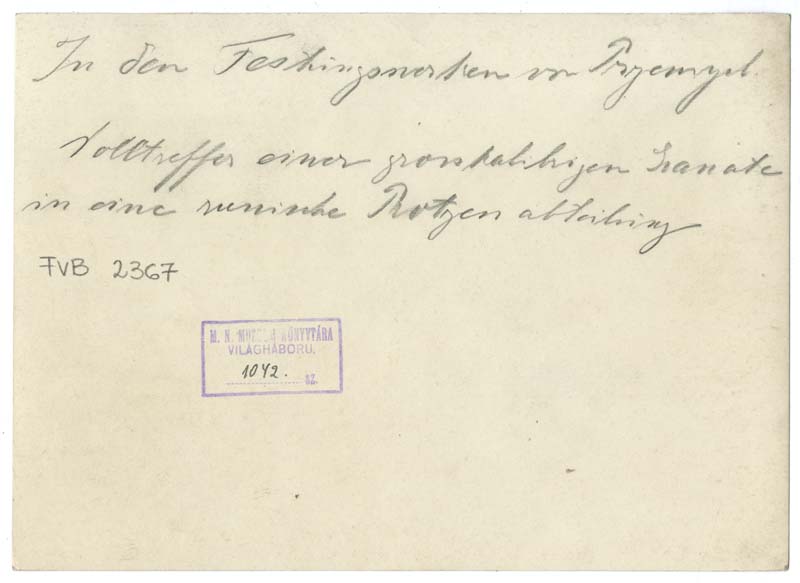 In den Festungswerken von Przemysl.
Volltreffer einer grosskalibrigen Granate
in eine russische Protzenabteilung
FvB 2367
M. N. MUZEUM KÖNYVTÁRA
VILÁGHÁBORU.
1042. SZ.